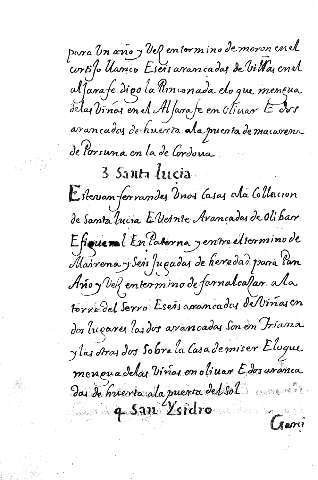 para Un año y Vez en termino de moron en el
cortijo blanco E seis arancadas de Viñas en el
alfarafe digo la Pinconada elo que mengua
delas Viñas en el Alfarafe en olivar E dos
arancadas de huerta ala puerta de macarena
de Porsuna en la de Cordova
3 Santa lucia
Estevan ferrandes Unas Casas ala Collacion
de Santa lucia E Veinte Arancadas de Olibar
E figueral En Paterna y entre el termino de
Mairena y Seis Jugadas de heredad para Pan
Año y Vez en termino de farnalcazar a la
torre del Serro E seis arancadas de Viñas en
dos lugares las dos arancadas son en Triana
y las otras dos Sobre la Casa de miser E lo que
mengua delas Viñas en olivar E dos aranca
das de huerta ala puerta del Sol
4 San Ysidro